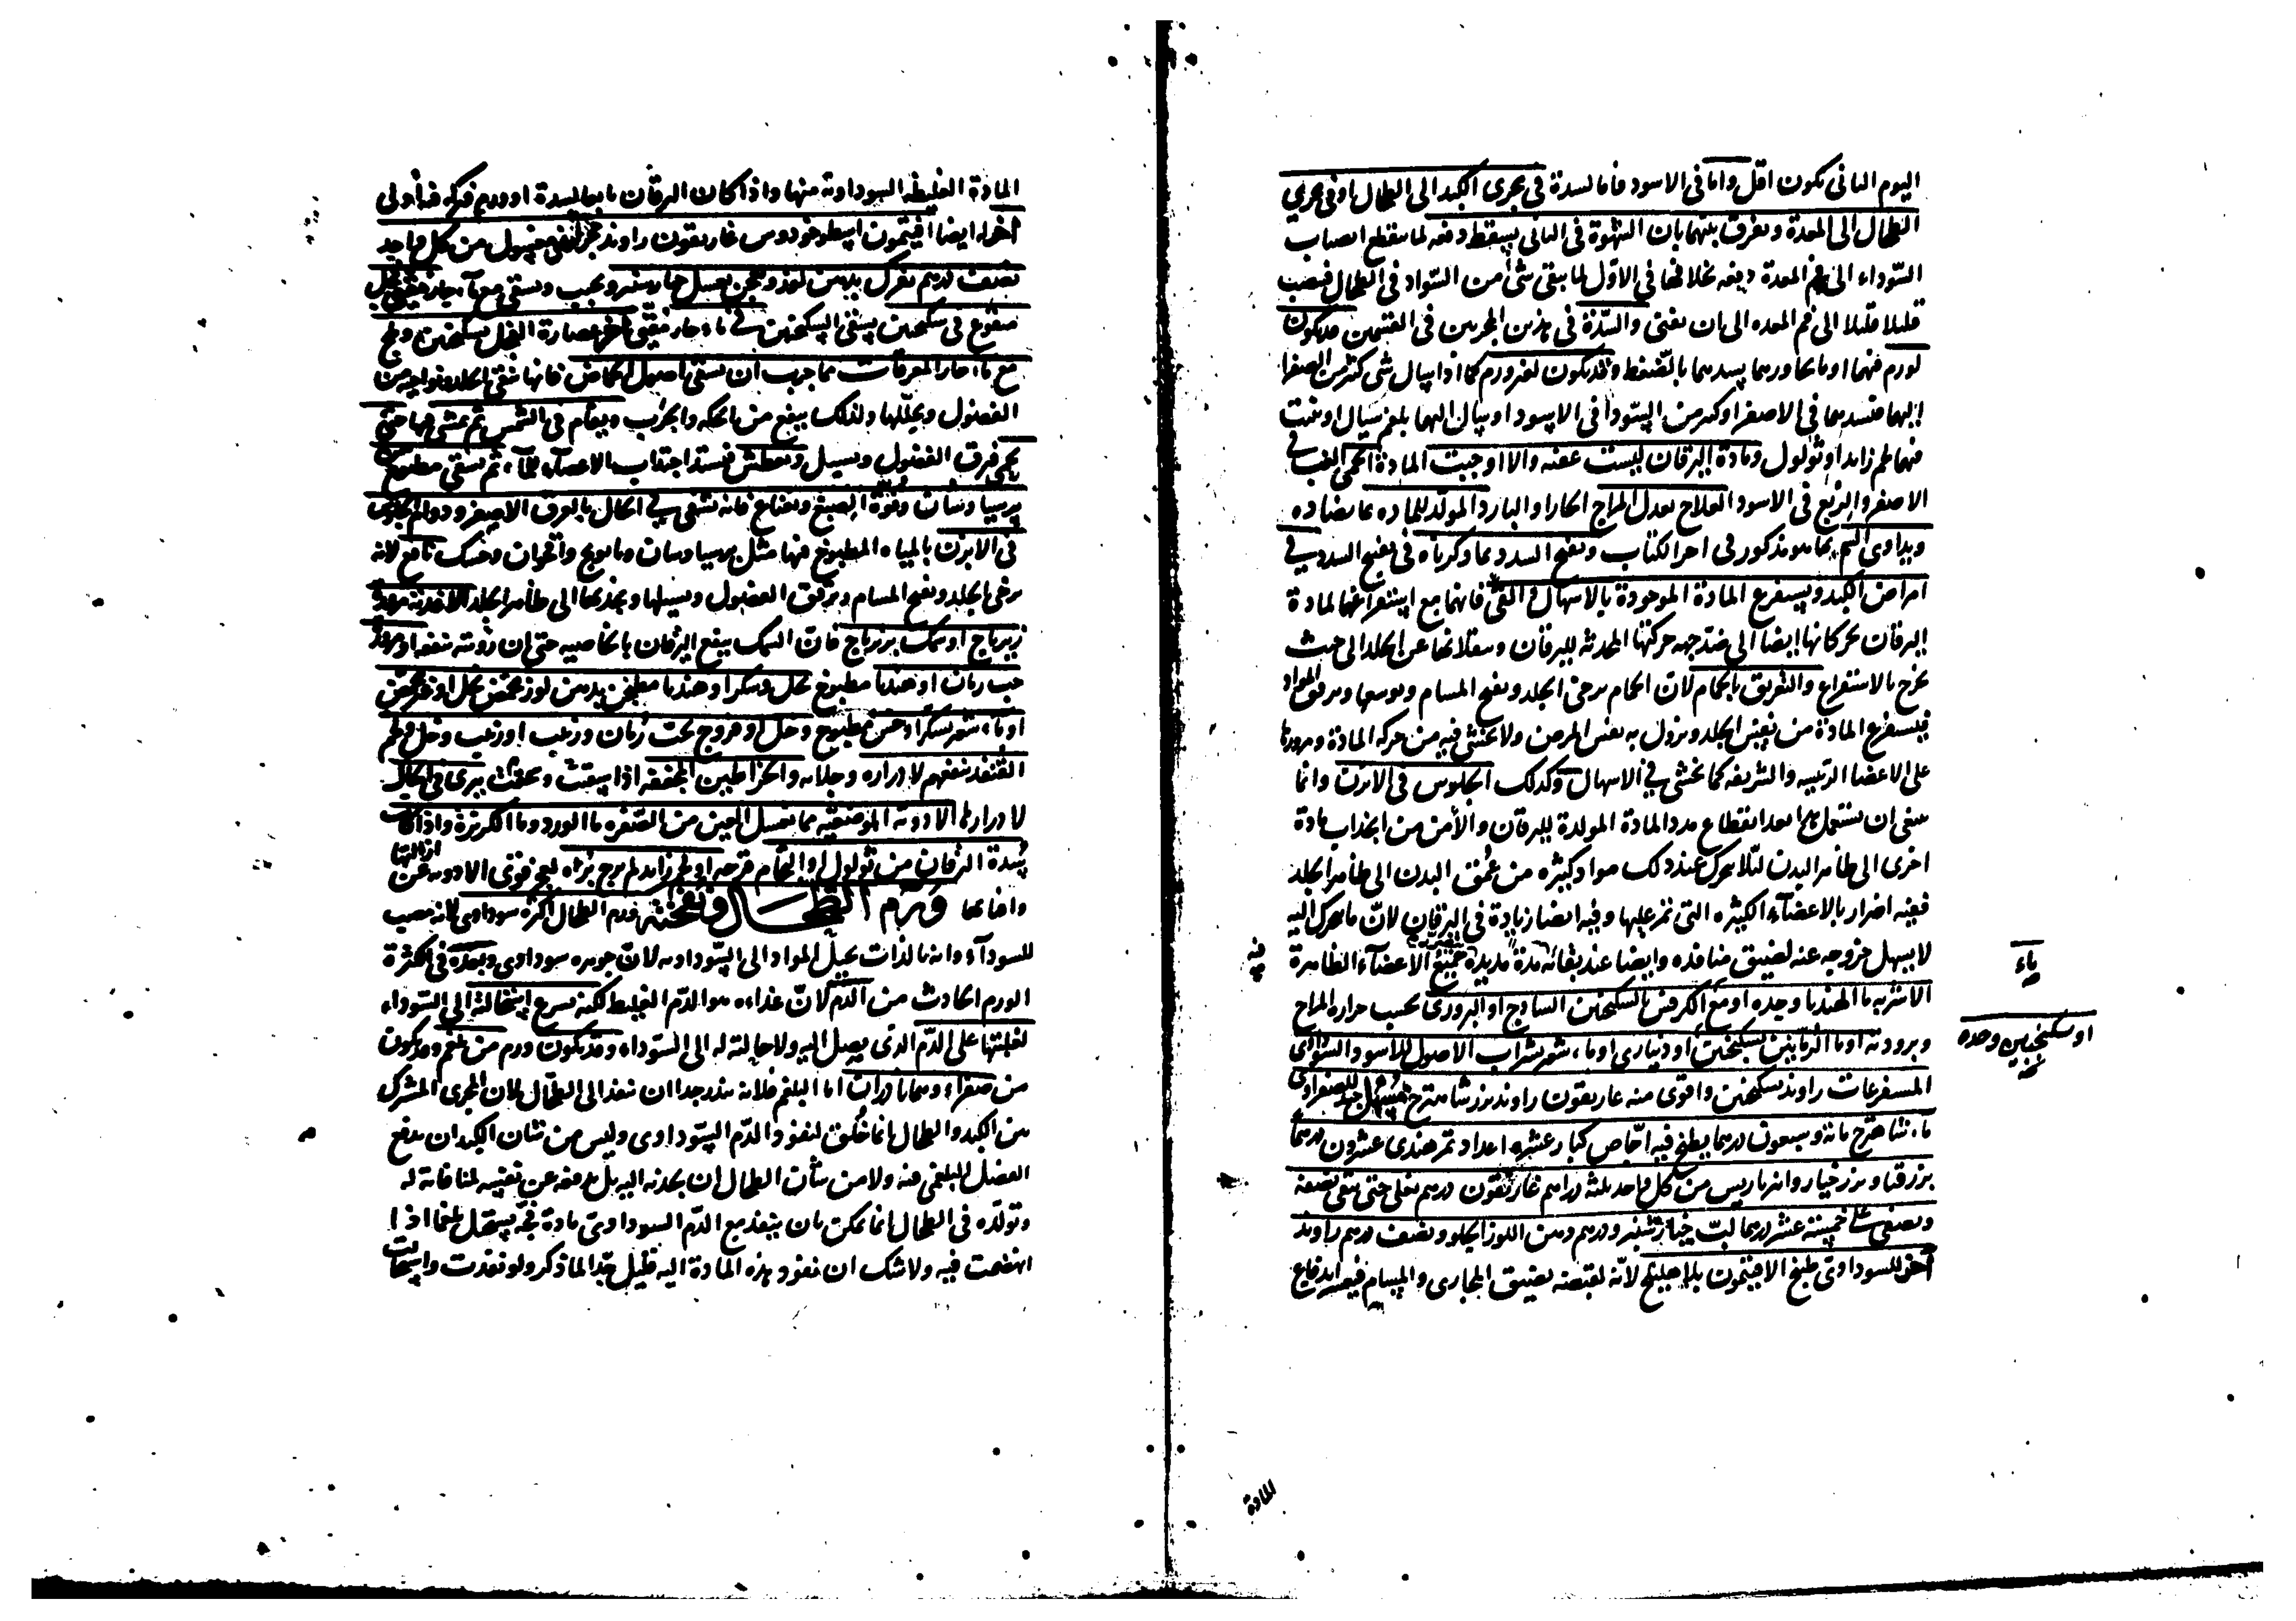 اليوم الثانى يكون اقل واما فى الاسود فاما لسدة فى مجرى الكبد الى الطحال او فى مجرى
الطحال الى المعدة ويفرق بينهما بان الشهوة فى الثانى يسقط دفعه لما ينقطع انصباب
السوداء الى فم المعدة دفعه بخلافها فى الاول لما يبقى شئ من السواد فى الطحال فينصب
قليلا قليلا الى فم المعده الى ان يفنى والسدة فى هذين المجريين فى القسمين قد يكون
لورم فيهما او ما يجاورهما يسدهما بالضغط وقد يكون لغير ورم كما اذا سال شئ كثير من الصفرا
اليهما فسدهما فى الاصفر او كثير من السودا فى الاسود او سال اليهما بلغم سيال او نبت
فيهما لحم زايد او ثولول ومادة اليرقان ليست عفنه والا اوجبت المادة الحمى الغب فى
الاصفر والربع فى الاسود العلاج يعدل المزاج الحار او البارد المولد للماده بما يضاده
ويداوى السم بما هو مذكور فى اخر الكتاب وتفتح السدد بما ذكرناه فى تفتيح السدد فى
امراض الكبد ويستفرغ المادة الموجودة بالاسهال والقئ فانهما مع استفراغهما لمادة
اليرقان يحركانها ايضا الى ضد جهه حركتها المحدثه لليرقان وينقلانها عن الجلد الى حيث
يخرج بالاستفراغ والتعريق بالحمام لان الحمام يرخى الجلد ويفتح المسام ويوسعها ويرقق المواد
فيستفرغ المادة من نفس الجلد ويزول به نفس المرض ولا يخشى فيه من حركه المادة ومرورها
على الاعضا الرئيسيه والشريفه كما يخشى فى الاسهال وكذلك الجلوس فى الابزن وانما
ينبغى ان يستعمل هذا بعد انقطاع مدد المادة المولدة لليرقان والأمن من انجذاب مادة
اخرى الى ظاهر البدن لئلا يحرك عند ذلك مواد كثيره من عمق البدن الى ظاهر الجلد
ففيه اضرار بالاعضاء الكثيره التى تمر عليها وفيه ايضا زيادة فى اليرقان لان ما يتحرك اليه
لا يسهل خروجه عنه لضيق منافذه وايضا عند بقائه مدة مديدة جميع الاعضاء الظاهرة
الاشربه ما الهندبا وحده او مع الكرفس بالسكنجبين الساذج او البزورى بحسب حراره المزاج
وبرودته او ما الرمانين بسكنجبين او دينارى او ماء شعير بشراب الاصول للاسود والسوداوى
المستفرغات راوند بسكنجبين واقوى منه غاريقون راوند بزر شاهترج مسهل جيد للصفراوى
ماء شاهترج مائة وسبعون درهما يطبخ فيه اجاص كبار عشره اعداد تمر هندى عشرون درهما
بزر قثا وبزر خيار وانبرباريس من كل واحد ثلثه دراهم غاريقون درهم يغلى حتى يبقى نصفه
ويصفى على خمسة عشر درهما لب خيارشنبر ودرهم دهن اللوز الحلو ونصف درهم راوند
آخر للسوداوى طبخ الافيتمون بلا اهليلج لانه لقبضه يضيق المجارى والمسام فيعسر اندفاع
ماء
او سكنجبين وحده
المادة
المادة الغليظه السوداوية منها واذا كان اليرقان تابعا لسدة او ورم فتركه فيه أولى
آخر له ايضا افيتمون اسطوخودوس غاريقون راوند مغسول من كل واحد
نصف درهم يفرك بدهن لوز ويعجن بعسل خيارشنبر ويحبب ويسقى مع ماء حار
منقوع فى سكنجبين يسقى السكنجبين فى ماء حار مقيئ آخر عصارة الفجل بسكنجبين وملح
مع ماء حار المعرقات مما جرب ان يسقى اصول الحماض فانها تنقى الجلد ونواحيه من
الفضول ويحللها ولذلك ينفع من الحكه والجرب ويقام فى الشمس ثم يمشى فيها حتى
يحمى فيرق الفضول ويسيل ويعطش فيشتد اجتذاب الاعضاء للماء ثم يسقى مطبوخ
برسياوشان وفوة الصبغ ونعناع فانه يشفى فى الحال بالعرق الاصفر ودوام الجلوس
فى الابزن بالمياه المطبوخ فيها مثل برسياوشان وبابونج واقحوان وحسك نافع لانه
يرخى الجلد ويفتح المسام ويرقق الفضول ويسيلها ويجذبها الى ظاهر الجلد الاغذية مزورة
زيرباج او سمك بزيرباج فان السمك ينفع اليرقان بالخاصيه حتى ان رؤيته تنفعه او مزورة
حب رمان او هندبا مطبوخ بخل وسكر او هندبا مطجن بدهن لوز محمض بخل او غير محمض
او ماء شعير بسكر او خس مطبوخ وخل او فروج تحت رمان وزبيب او زبيب وخل ولحم
القنفذ ينفعهم لادراره وجلائه والخراطين المجففه اذا سقيت وسحقت يبرى فى الحال
لادرارها الادوية الموضعيه مما يغسل العين من الصفره ما الورد وما الكزبرة واذا كانت
سدة اليرقان من ثولول او التحام قرحه او لحم زايد لم يرج برؤه لعجز قوى الادويه عن ازالتها
وافنائها ورم الطحال ونفخته ورم الطحال اكثره سوداوى لانه مصب
للسوداء وانه بالذات يحيل المواد الى السوداويه لان جوهره سوداوى وبعده فى الكثرة
الورم الحادث من الدم لان غذاءه هو الدم الغليظ لكنه يسرع استحالته الى السوداء
لغلبتها على الدم الذى يصل اليه ولاحالته له الى السوداء وقد يكون ورم من بلغم وقد يكون
من صفراء وهما نادران اما البلغم فلانه يندر جدا ان ينفذ الى الطحال لان المجرى المشترك
بين الكبد والطحال انما خلق لنفوذ الدم السوداوى وليس من شان الكبد ان يدفع
الفضل البلغمى فيه ولا من شأن الطحال ان يجذبه اليه بل يدفعه عن نفسه لمنافاته له
وتولده فى الطحال انما يمكن بان ينفذ مع الدم السوداوى مادة فجة يستحيل بلغما اذا
انهضمت فيه ولا شك ان نفوذ هذه المادة اليه قليل جدا لما ذكر ولو نفذت واستحالت